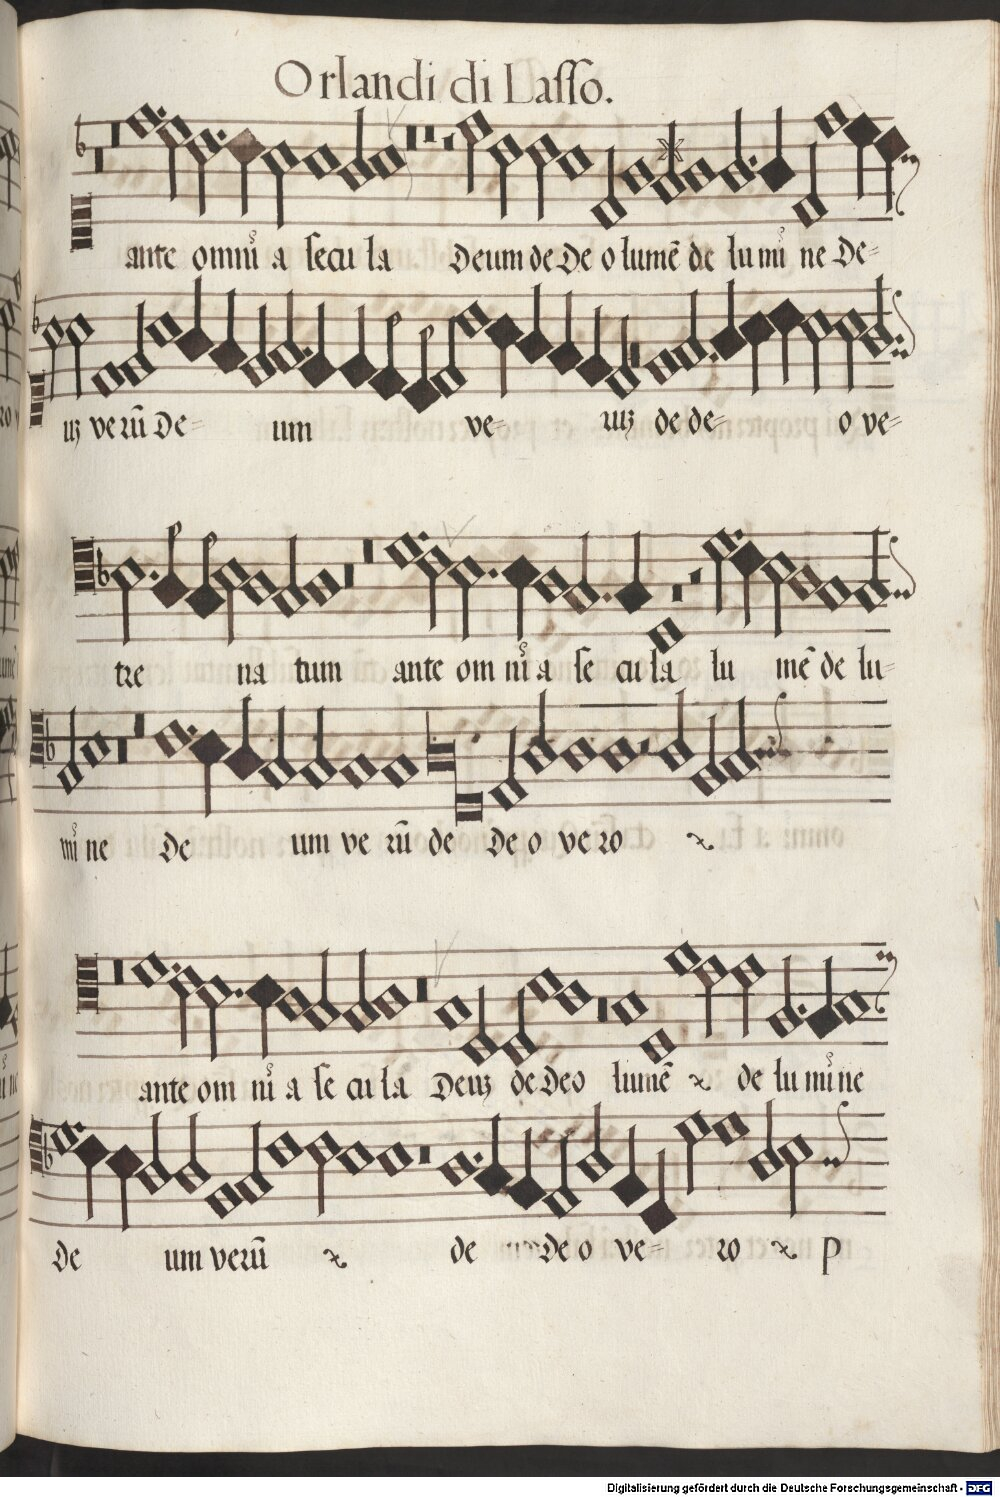 Orlandi di Lasso.
ante omniũ a secu la Deum de De o lumẽ de lu mi ne De=
uʒ ve rũ De= um ve= ruʒ de de= o ve=
tre na tum ante om niũ a se cu la lu mẽ de lu=
mi ne De um ve rũ de De o ve ro
ante om niũ a se cu la Deuʒ de Deo lumẽ de lu mi ne
De um verũ de De o ve= ro P
Digitalisierung gefördert durch die Deutsche Forschungsgemeinschaft - DFG